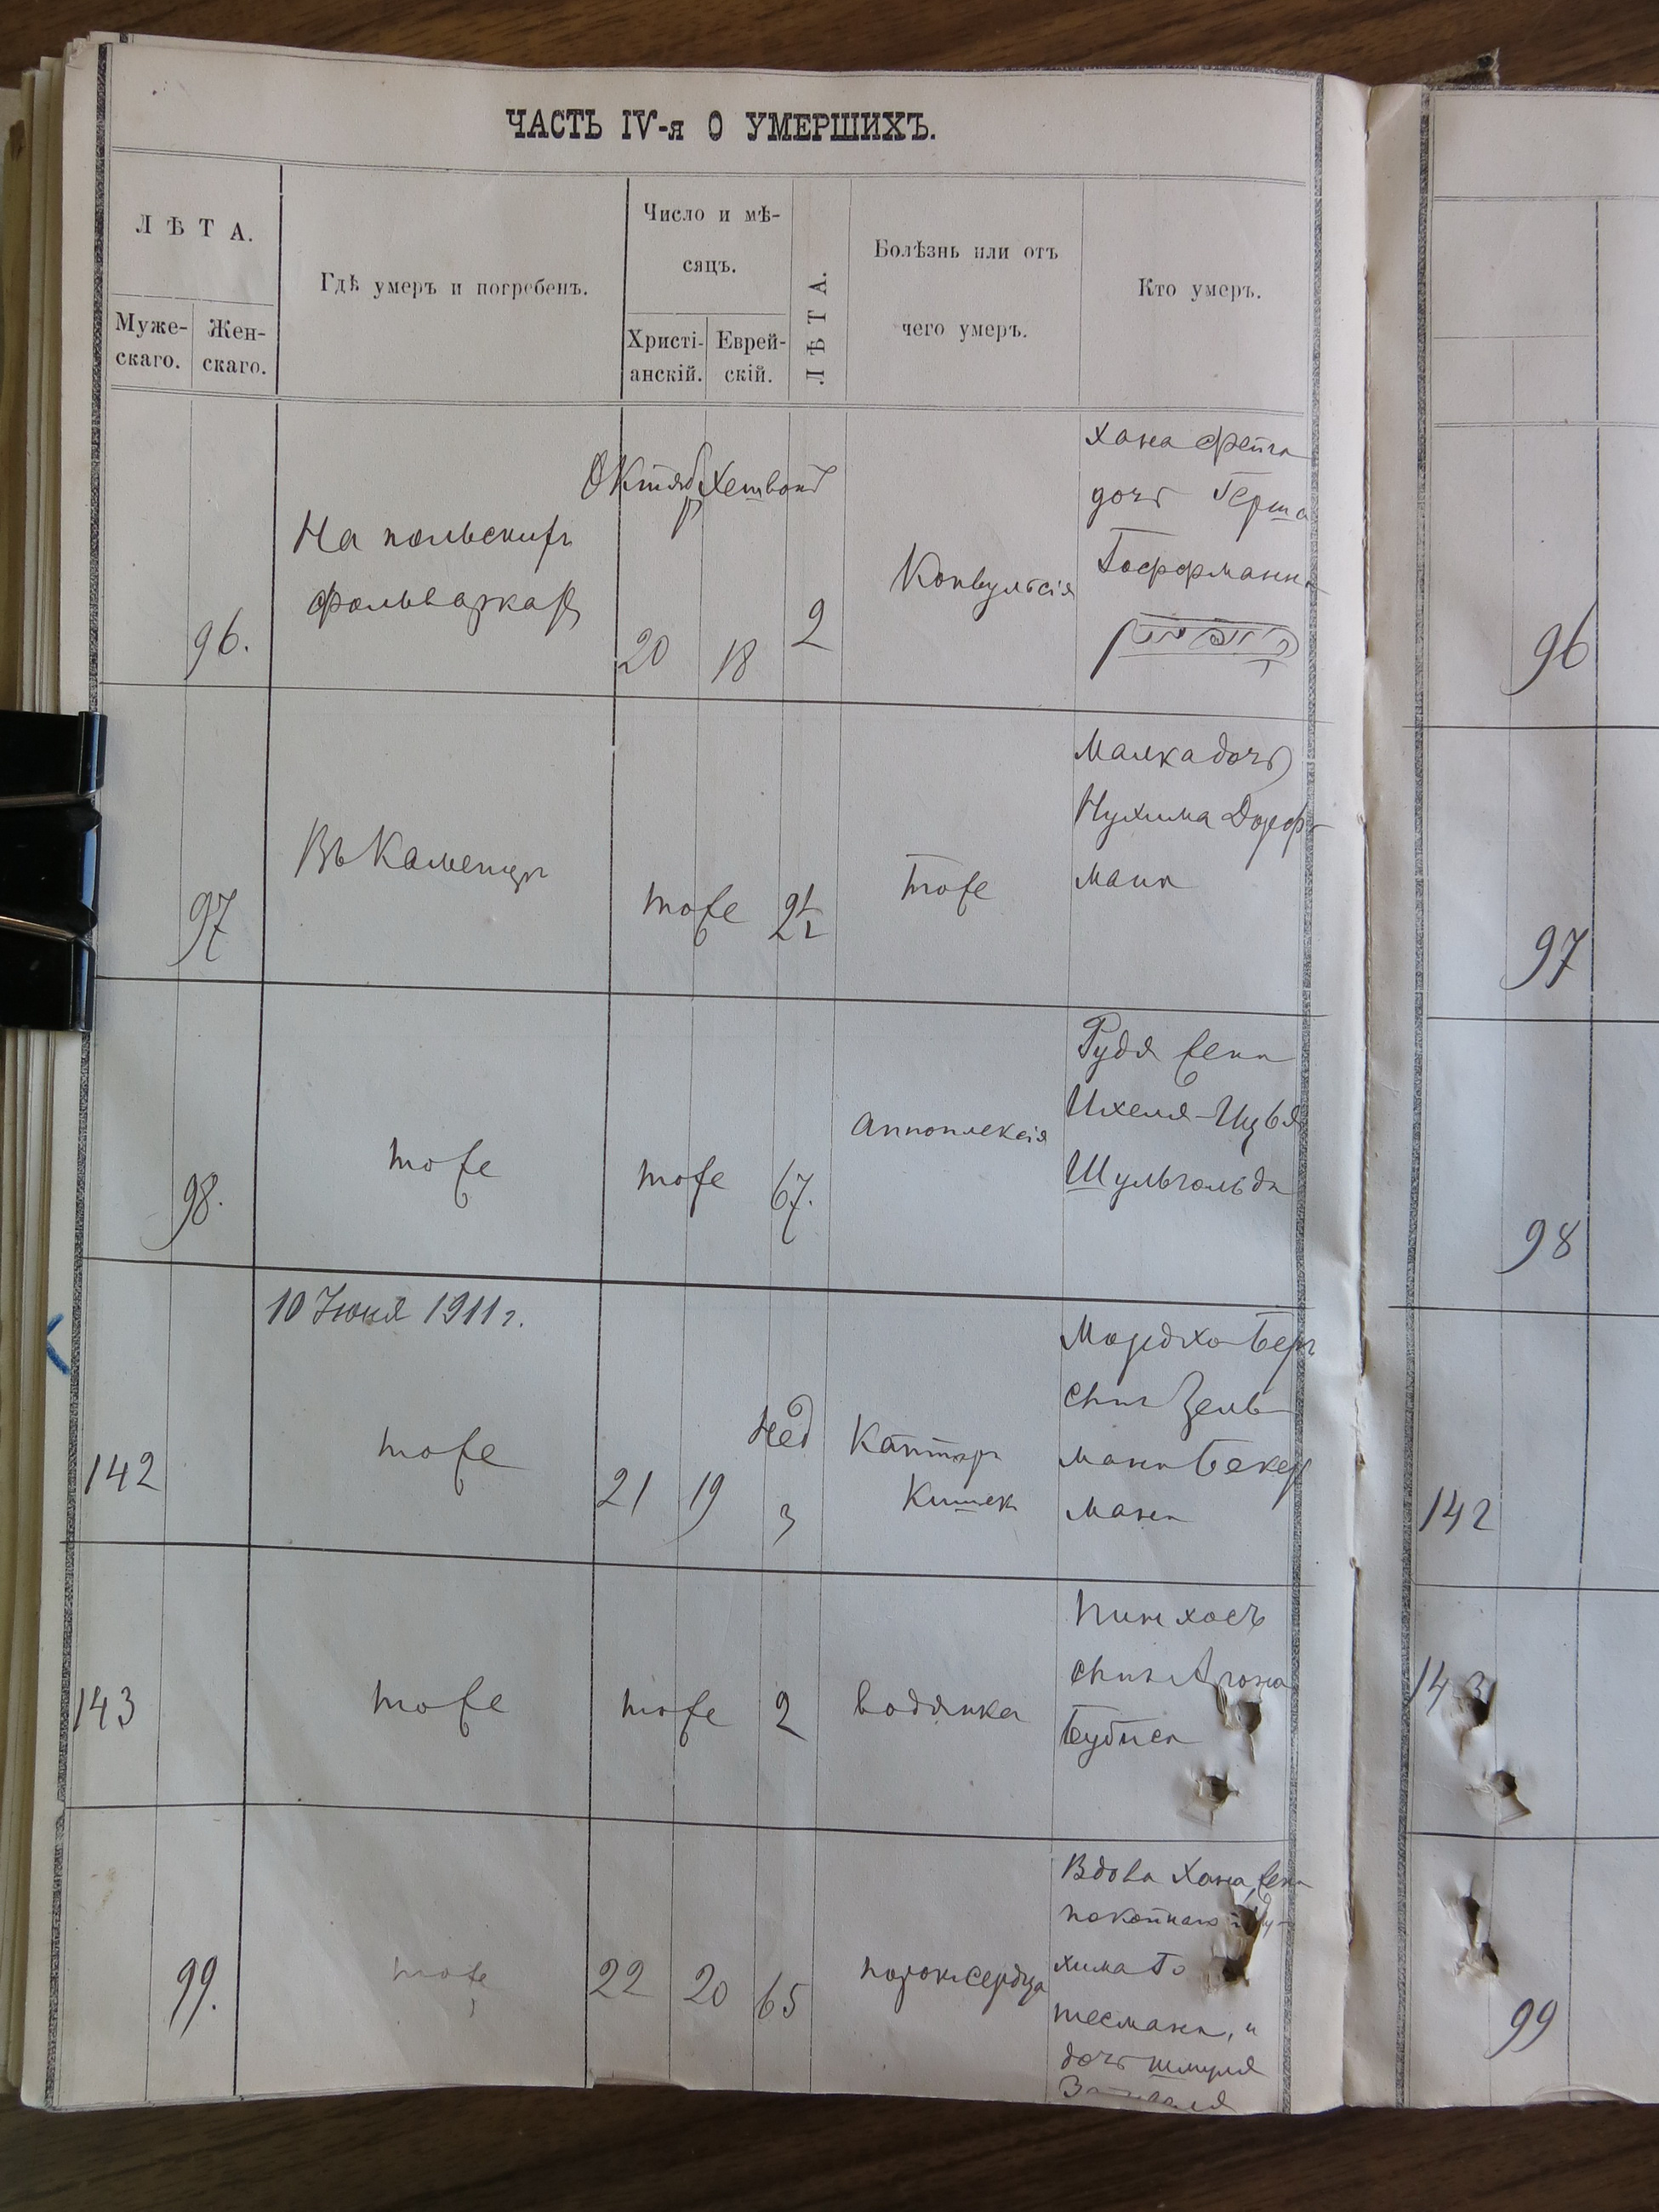 ЧАСТЬ IV-я О УМЕРШИХЪ.
ЛѢТА.
Муже-
скаго.
Жен-
скаго.
Гдѣ умеръ и погребенъ.
Число и мѣ-
сяцъ.
Христі-
анскій.
Еврей-
скій.
ЛѢТА.
Болѣзнь или отъ
чего умеръ.
Кто умеръ.
96.
На польскихъ
фольваркахъ
Октяб
р
Хешвонъ
20
18
2
Конвульсія
Хана Фейга
дочь Герша
Гоффмана
96
97
Въ Каменцѣ
тоже
2 1/2
тоже
Малка дочь
Нухима Дорф-
манъ
97
98.
тоже
тоже
67.
Апоплексія
Рудя жена
Ихеля-Ицья
Шульгольда
98
10 Іюня 1911 г.
142
тоже
21
19
Нед
3
Каттаръ
Кишек
Мордхо Беръ
сынъ Зель
мана Бекер
манъ
142
143
тоже
тоже
2
водянка
Пинхосъ
сынъ Арона
143
99.
тоже
22
20
65
порокъ сердца
Вдова Хана, жена
покойнаго
хима Го
тесмана, и
дочь Шмуля
99